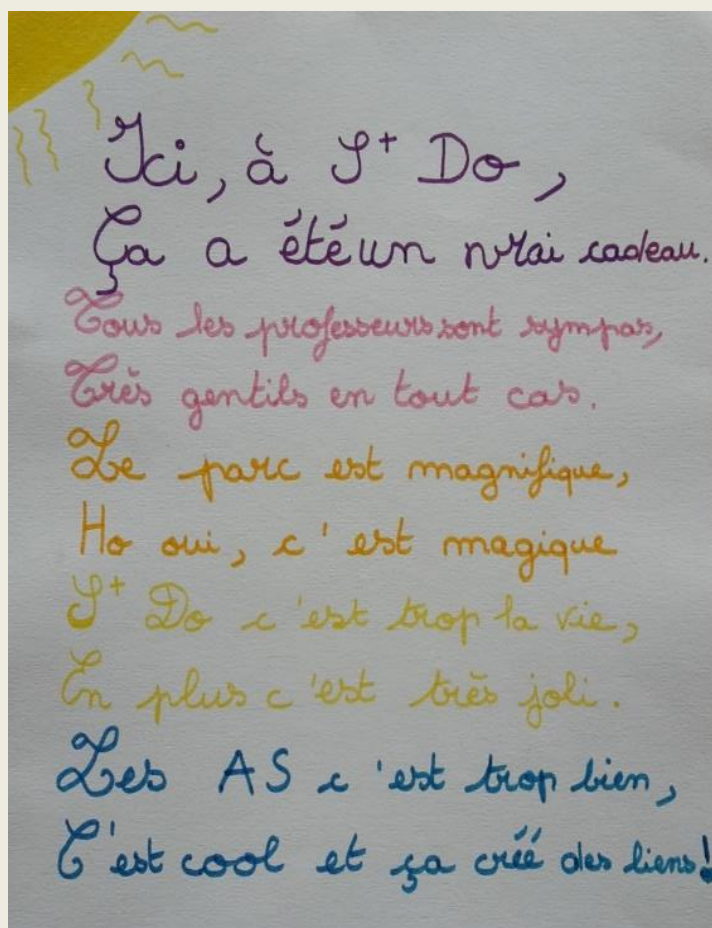 Ici, à St Do,
Ça a été un vrai cadeau.
Tous les professeurs sont sympas,
Très gentils en tout cas.
Le parc est magnifique,
Ho oui, c'est magique
St Do c'est trop la vie,
En plus c'est très joli.
Les AS c'est trop bien,
C'est cool et ça créé des liens!